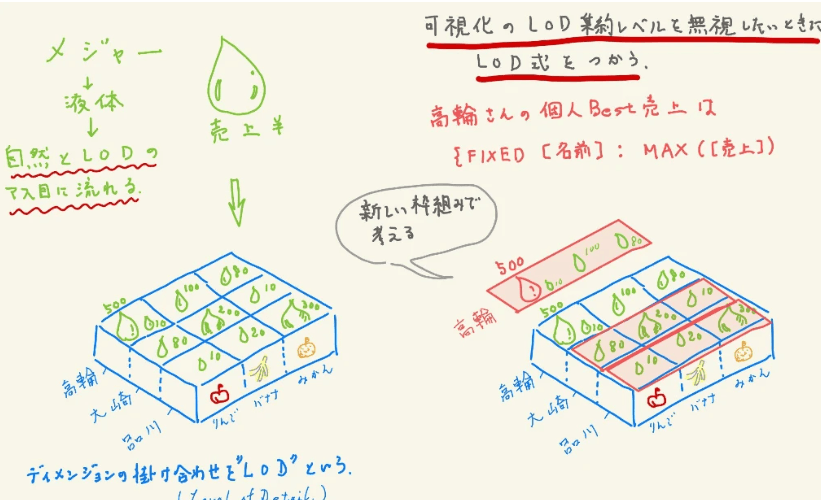 メジャー
↓
液体
↓
自然とLODの
マス目に流れる.
売上¥
可視化のLOD集約レベルを無視したいときに
LOD式をつかう.
高輪さんの個人Best売上は
{FIXED [名前]: MAX([売上])
新しい枠組みで
考える
500 10 100 80
80 200 10
10 20 300
高輪
大崎
品川
りんご
バナナ
みかん
500 10 100 80
高輪
500 10 100 80
80 200 10
10 20 300
高輪
大崎
品川
りんご
バナナ
みかん
ディメンションの掛け合わせを"LOD"という.
(Level of Detail.)